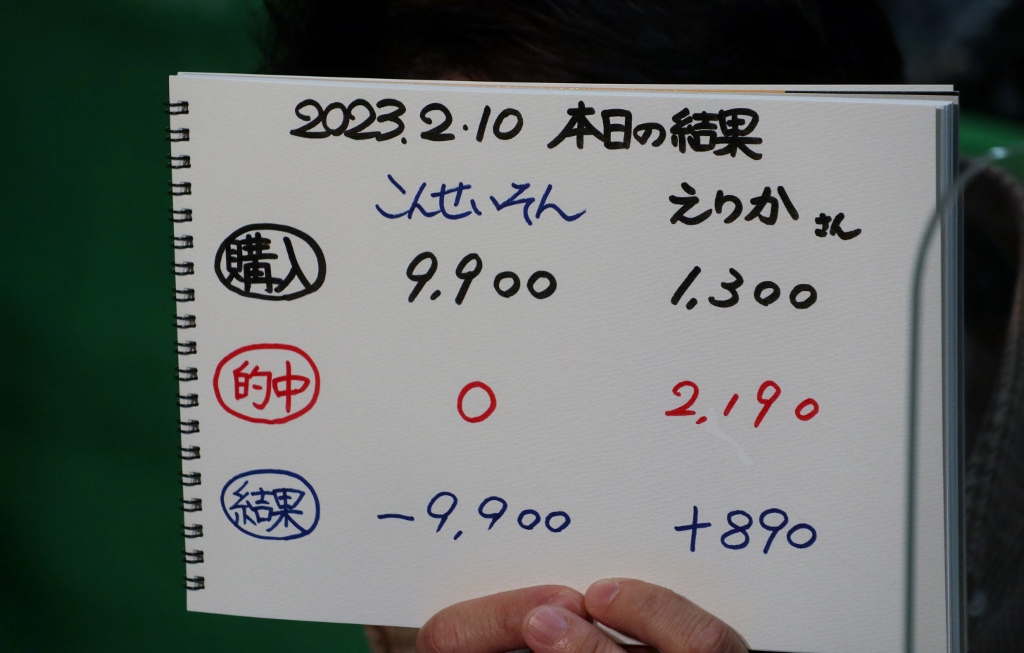 2023.2.10 本日の結果
こんせいそん えりかさん
購入 9,900 1,300
的中 0 2,190
結果 -9,900 +890